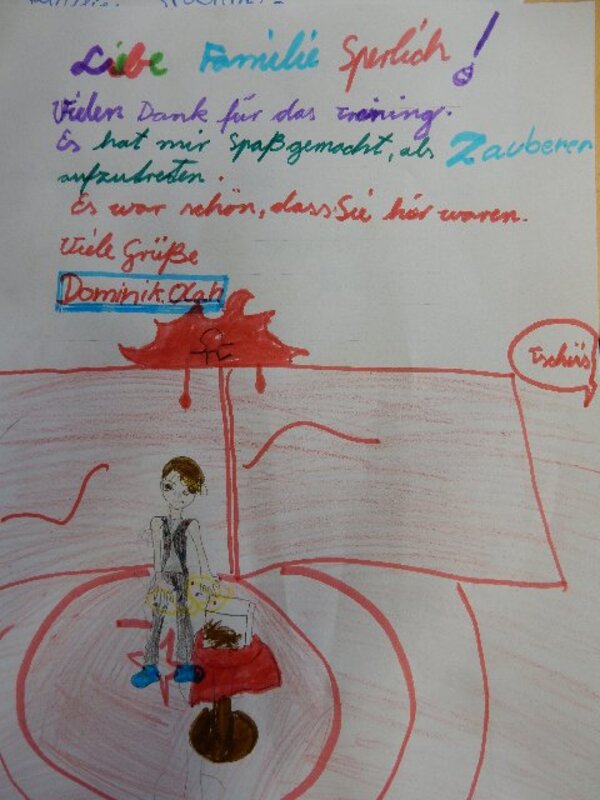 Liebe Familie Sperlich!
Vielen Dank für das Training.
Es hat mir Spaß gemacht, als Zauberer
aufzutreten.
Es war schön, dass Sie hier waren.
Viele Grüße
Dominik Olah
Tschüs